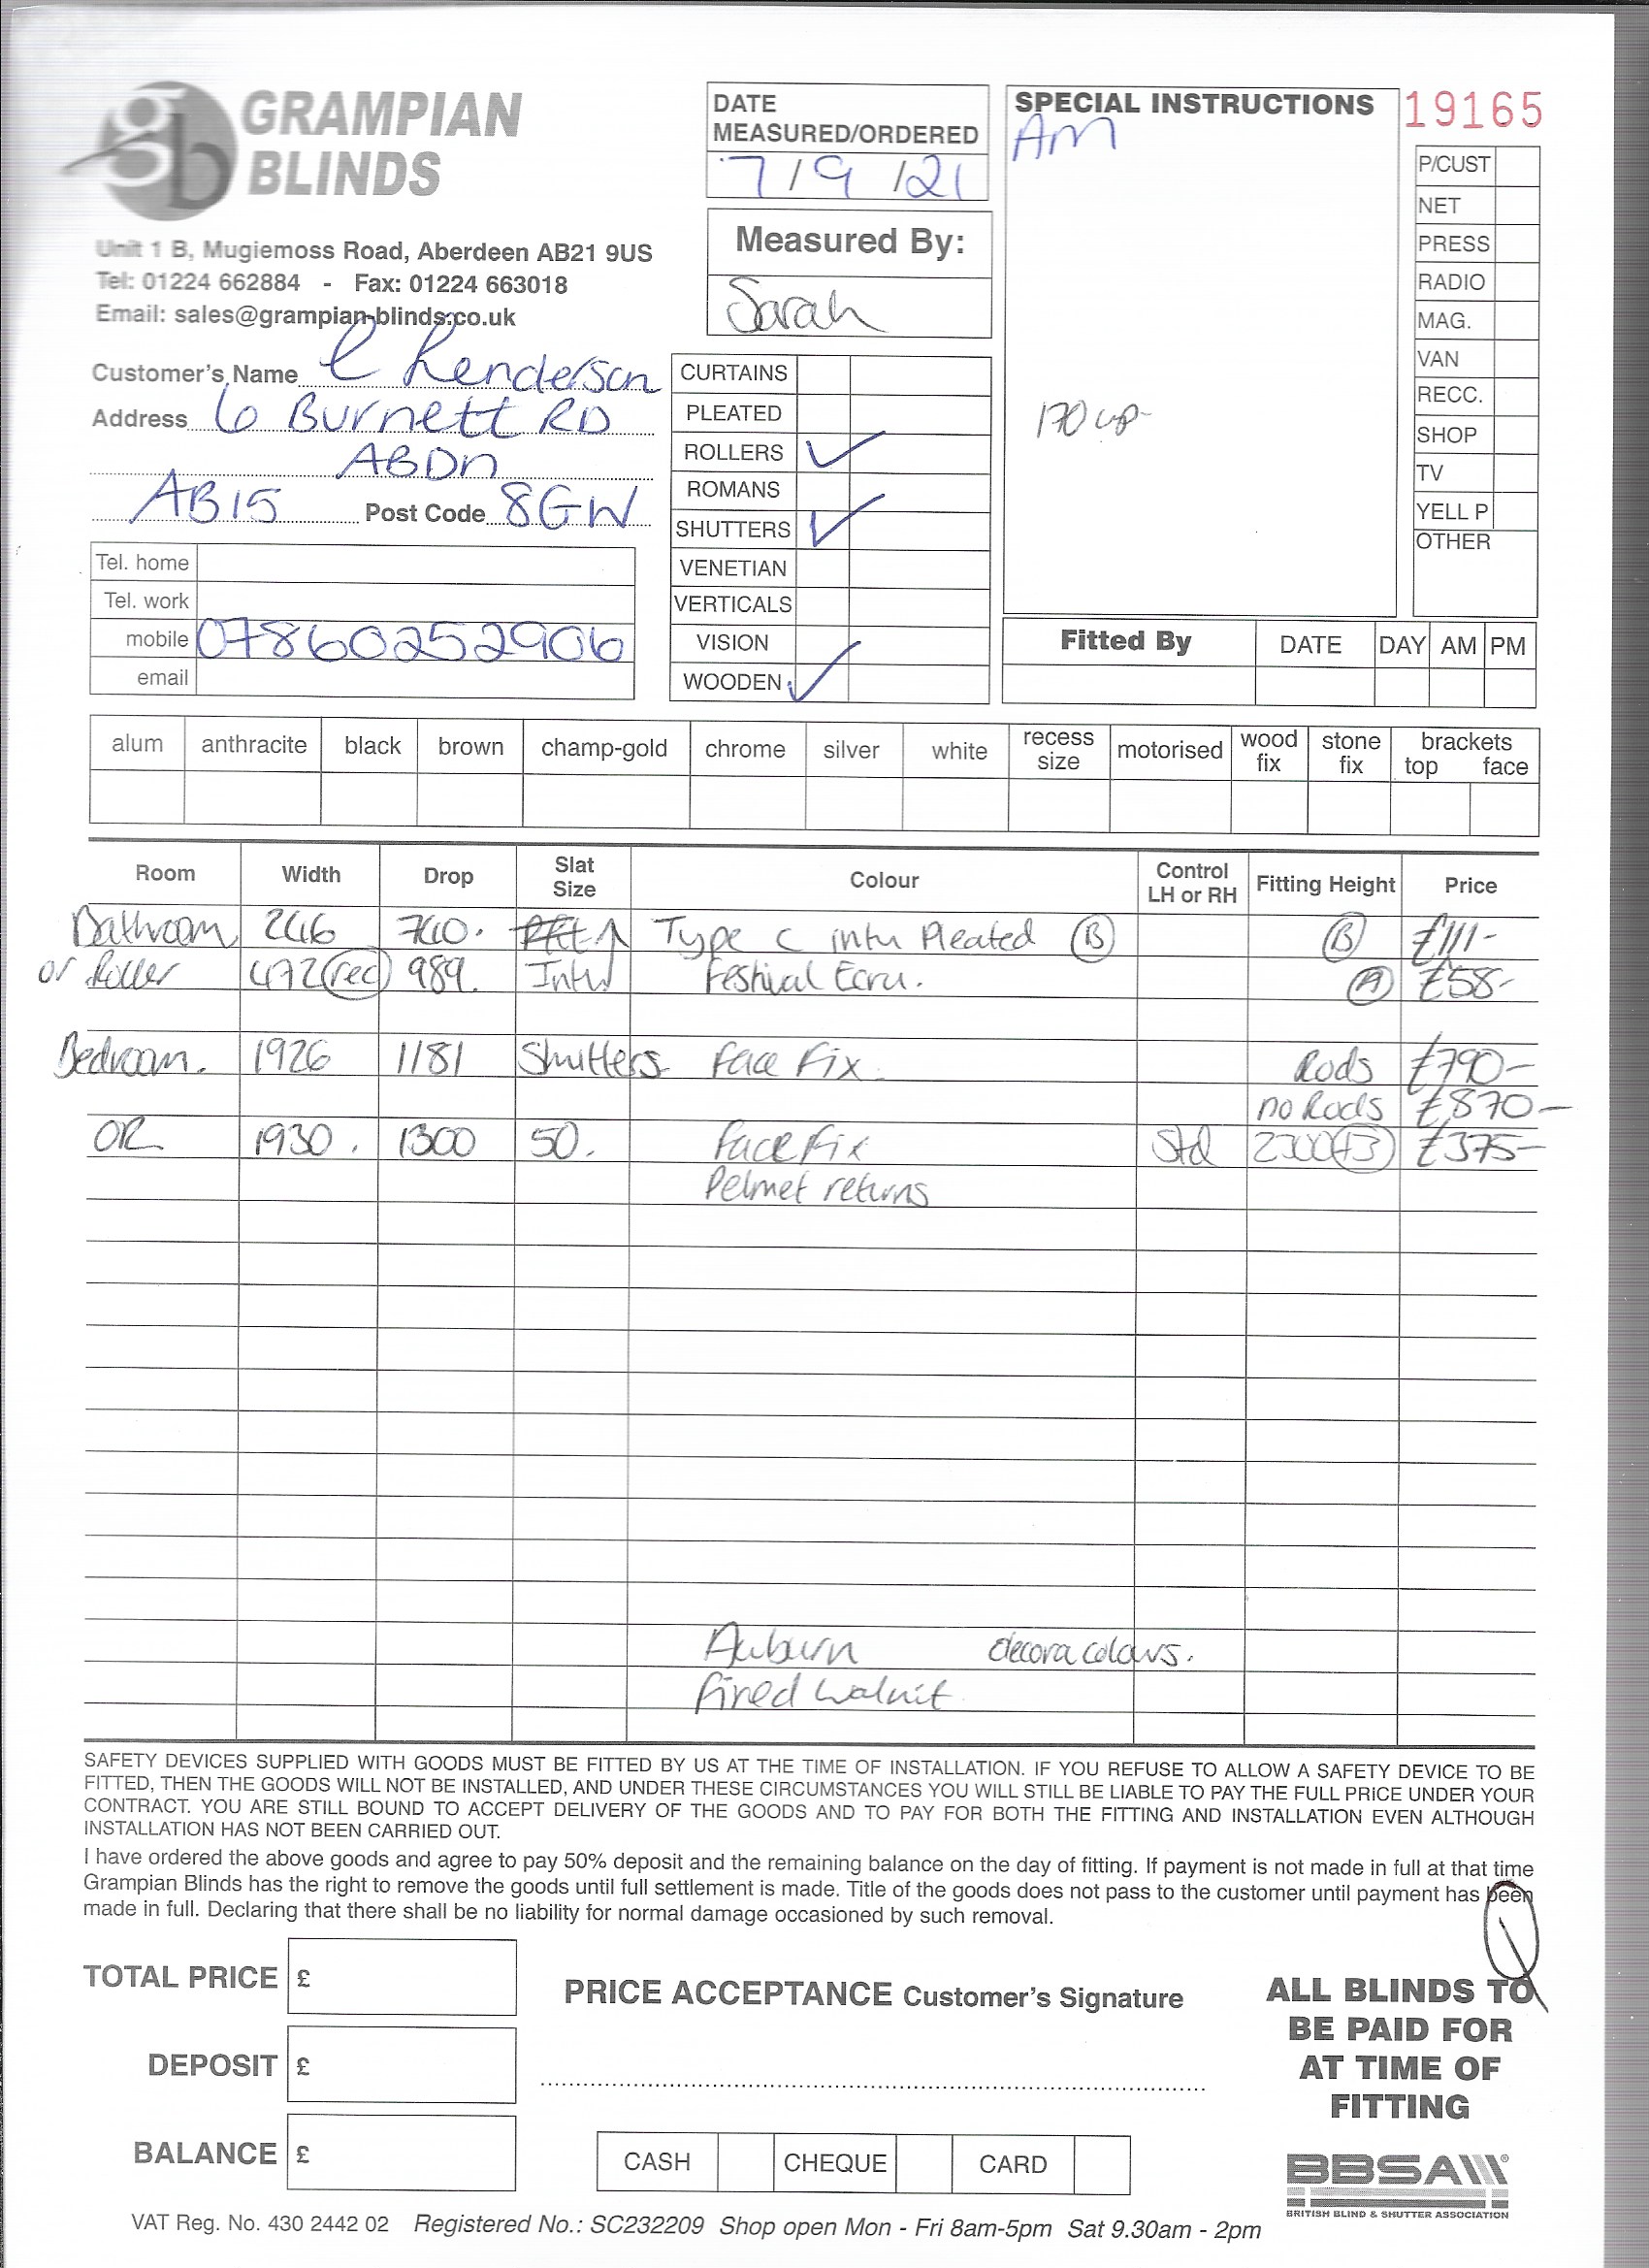 GRAMPIAN
BLINDS
Unit 1 B, Mugiemoss Road, Aberdeen AB21 9US
Tel: 01224 662884 - Fax: 01224 663018
Email: sales@grampian-blinds.co.uk
DATE
MEASURED/ORDERED
7/9/21
Measured By:
Sarah
SPECIAL INSTRUCTIONS
AM
170 up
19165
P/CUST
NET
PRESS
RADIO
MAG.
VAN
RECC.
SHOP
TV
YELL P
OTHER
Customer's Name Henderson
Address 6 Burnett RD
ABDN
AB15 Post Code 8GW
Tel. home
Tel. work
mobile 07860252906
email
CURTAINS
PLEATED
ROLLERS ✓
ROMANS
SHUTTERS ✓
VENETIAN
VERTICALS
VISION
WOODEN ✓
Fitted By DATE DAY AM PM
alum anthracite black brown champ-gold chrome silver white recess size motorised wood fix stone fix brackets top face
Room Width Drop Slat Size Colour Control LH or RH Fitting Height Price
Bathroom 246 740. Type C intu Pleated B B £111-
or Roller 472 rec 989. Intu Festival Ecru. A £58-
Bedroom. 1926 1181 Shutters Face Fix. Rods £790-
no Rods £870-
OR 1930. 1300 50. Face Fix Std £375-
Pelmet returns
Auburn decora colours.
Fired Walnut
SAFETY DEVICES SUPPLIED WITH GOODS MUST BE FITTED BY US AT THE TIME OF INSTALLATION. IF YOU REFUSE TO ALLOW A SAFETY DEVICE TO BE
FITTED, THEN THE GOODS WILL NOT BE INSTALLED, AND UNDER THESE CIRCUMSTANCES YOU WILL STILL BE LIABLE TO PAY THE FULL PRICE UNDER YOUR
CONTRACT. YOU ARE STILL BOUND TO ACCEPT DELIVERY OF THE GOODS AND TO PAY FOR BOTH THE FITTING AND INSTALLATION EVEN ALTHOUGH
INSTALLATION HAS NOT BEEN CARRIED OUT.
I have ordered the above goods and agree to pay 50% deposit and the remaining balance on the day of fitting. If payment is not made in full at that time
Grampian Blinds has the right to remove the goods until full settlement is made. Title of the goods does not pass to the customer until payment has been
made in full. Declaring that there shall be no liability for normal damage occasioned by such removal.
TOTAL PRICE £
DEPOSIT £
BALANCE £
PRICE ACCEPTANCE Customer's Signature
CASH CHEQUE CARD
ALL BLINDS TO
BE PAID FOR
AT TIME OF
FITTING
BBSA
BRITISH BLIND & SHUTTER ASSOCIATION
VAT Reg. No. 430 2442 02 Registered No.: SC232209 Shop open Mon - Fri 8am-5pm Sat 9.30am - 2pm